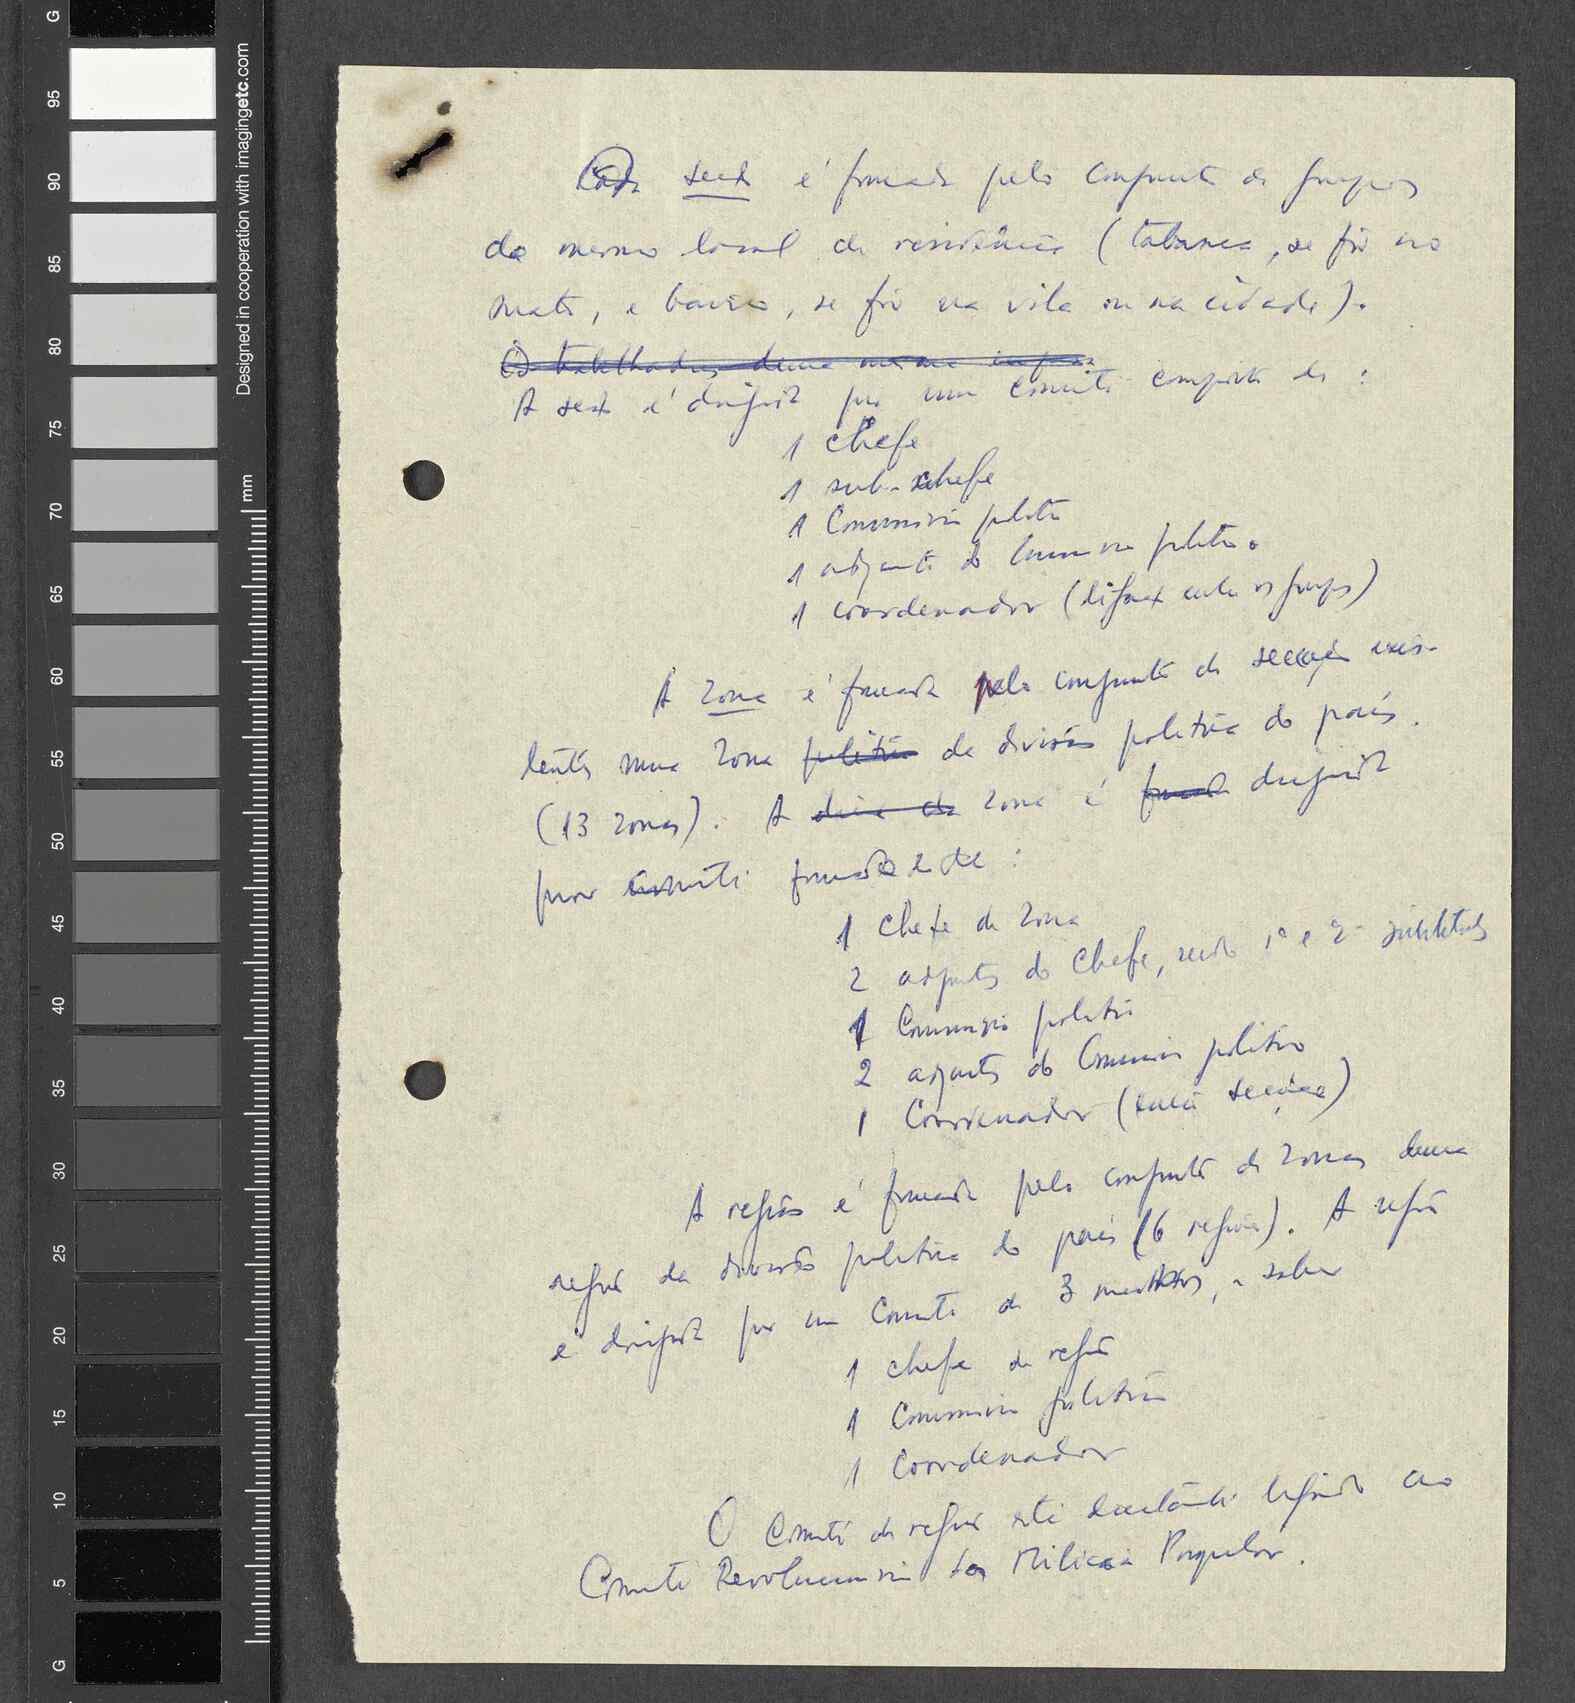 Cada secção é formada pelo conjunto de grupos
do mesmo local de residência (tabanca, se for no
mato, e bairro, se for na vila ou na cidade).
Os trabalhadores duma mesma
A secção é dirigida por um comité composto de :
1 chefe
1 sub-chefe
1 Comissário político
1 adjunto do Comissário político.
1 coordenador (ligação entre os grupos)
A zona é formada pelo conjunto de secções exis-
tentes numa zona política da divisão política do país.
(13 zonas). A zona é formada dirigida
por comité formado de :
1 chefe de zona
2 adjuntos do chefe, sendo 1º e 2º substitutos
1 Comissário político
2 adjuntos do Comissário político
1 Coordenador (entre secções)
A região é formada pelo conjunto de zonas duma
região da divisão política do país (6 regiões). A região
é dirigida por um Comité de 3 membros, a saber
1 chefe de região
1 Comissário político
1 Coordenador
O Comité de região está directamente ligado ao
Comité Revolucionário da Milícia Popular.
G
95
90
85
80
75
70
65
60
55
50
45
40
35
30
25
20
15
10
5
G
Designed in cooperation with imagingetc.com
mm